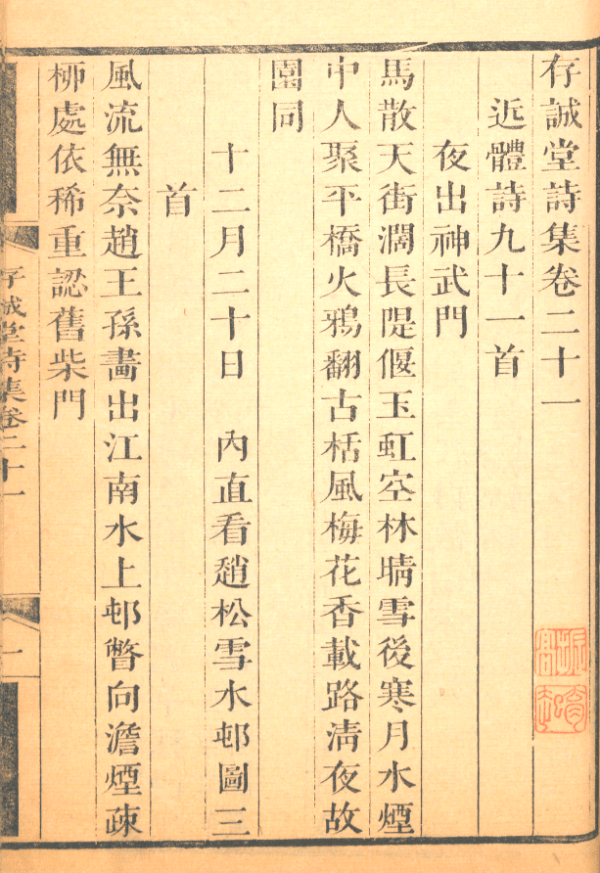 存誠堂詩集卷二十一
近體詩九十一首
夜出神武門
馬散天街濶長隄偃玉虹空林晴雪後寒月水煙
中人聚平橋火鴉翻古栝風梅花香載路清夜故
園同
十二月二十日 內直看趙松雪水邨圖三
首
風流無奈趙王孫畫出江南水上邨瞥向澹煙疎
栁處依稀重認舊柴門
存誠堂詩集卷二十一
一